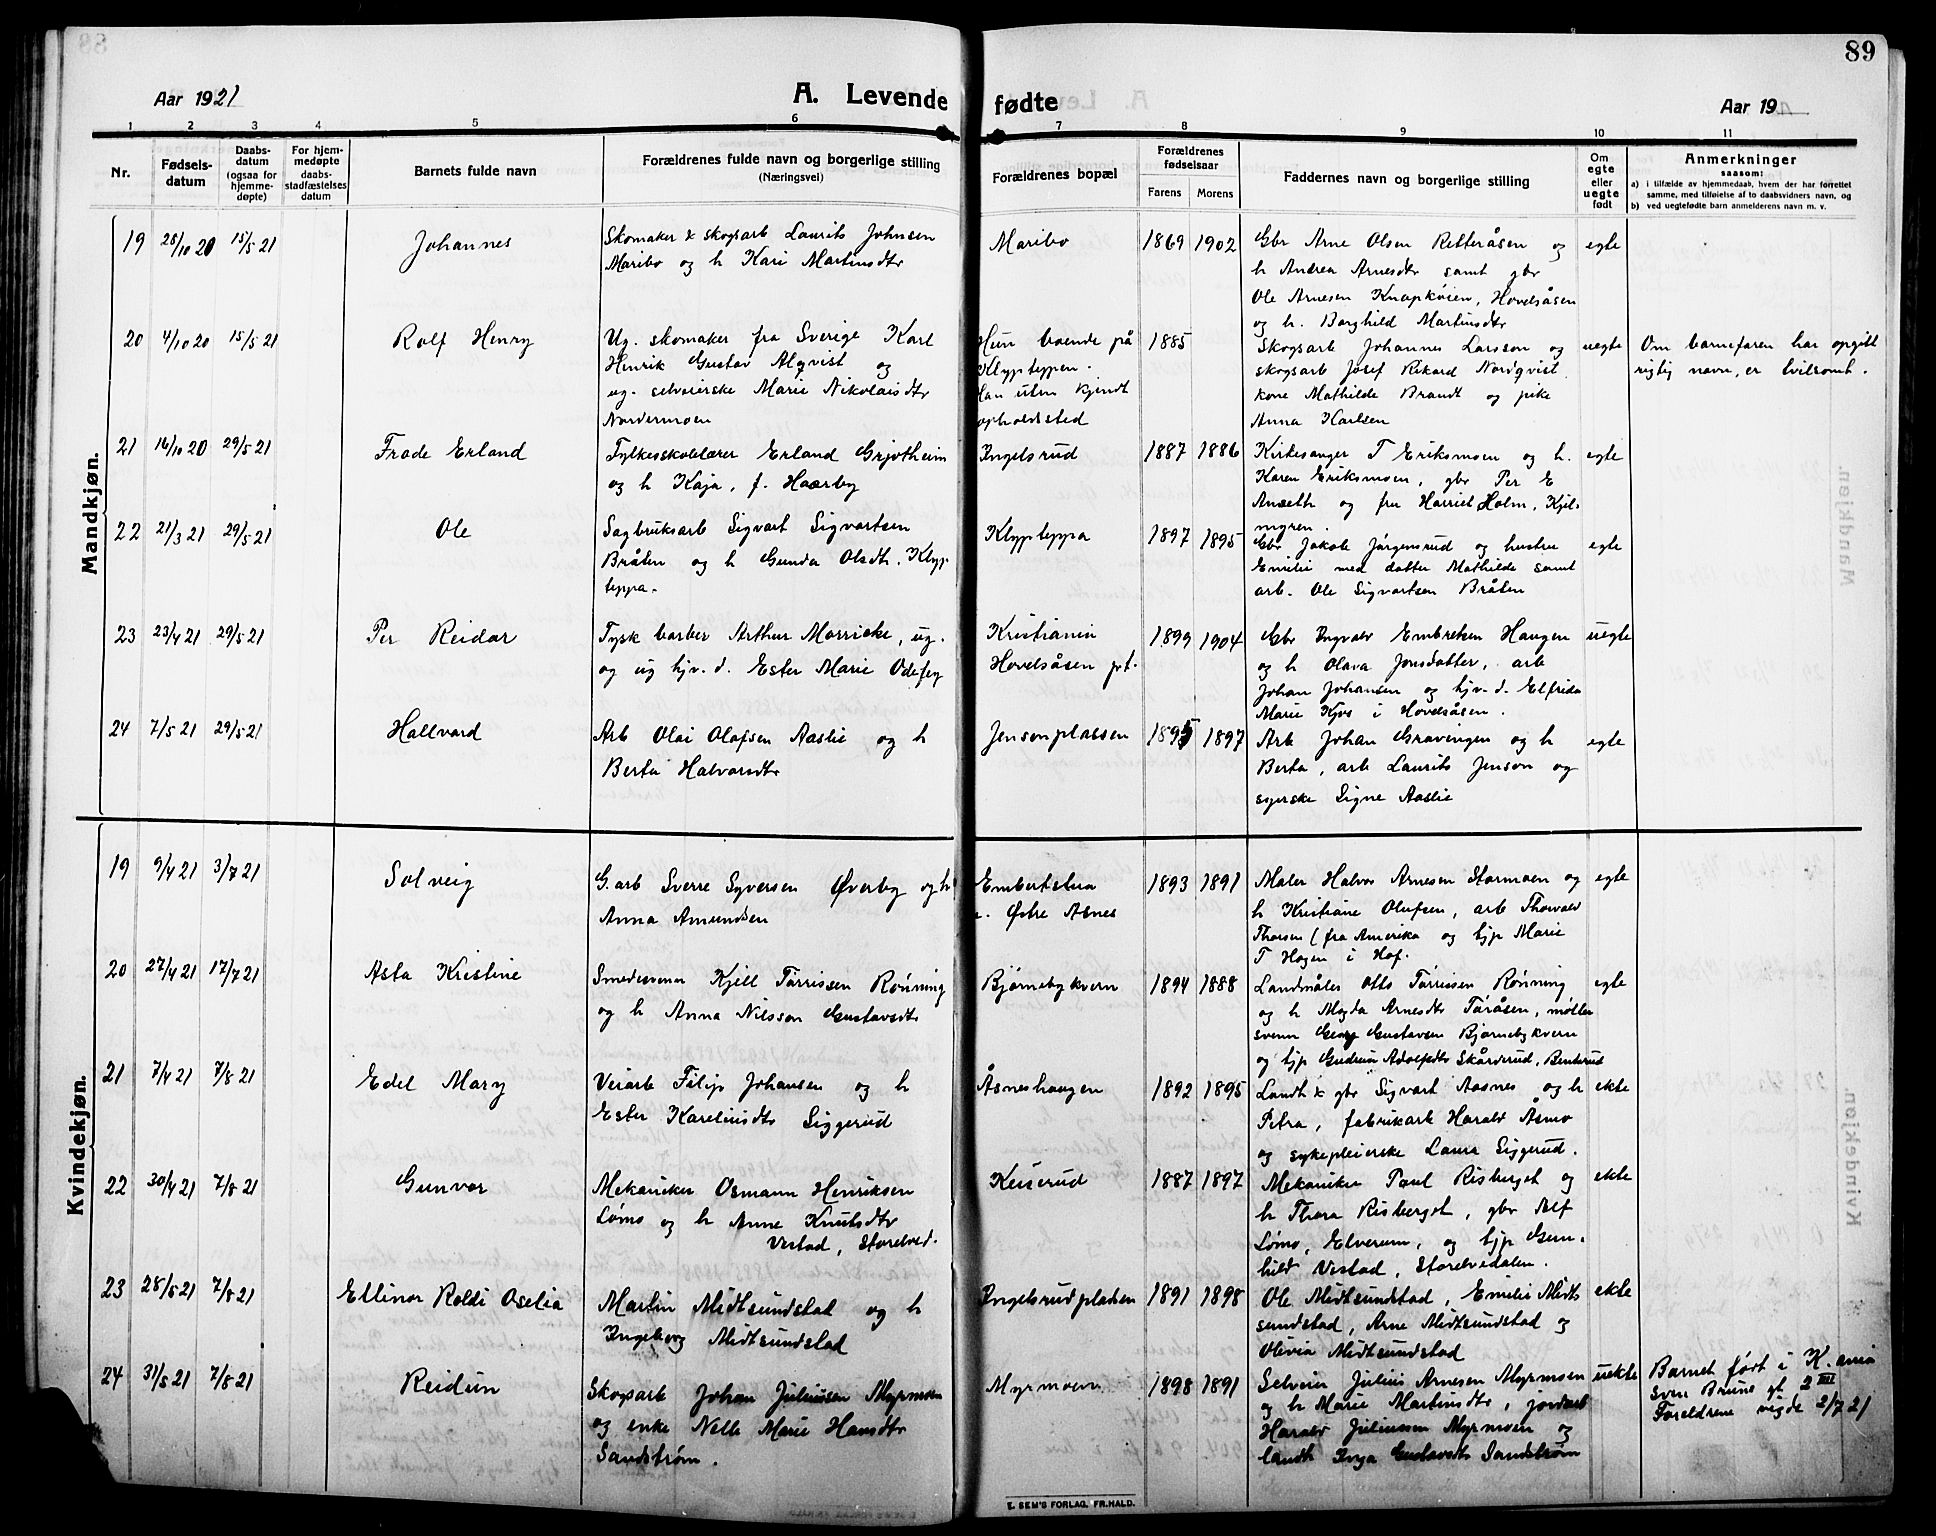 89
Aar 1921
A. Levende fødte
Aar 19
1 2 3 4 5 6 7 8 9 10 11
Nr.
Fødsels-
datum
Daabs-
datum
(ogsaa for
hjemme-
døpte)
For hjem-
medøpte
daabs-
stadfæstelses
datum
Barnets fulde navn
Forældrenes fulde navn og borgerlige stilling
(Næringsvei)
Forældrenes bopæl
Forældrenes
fødselsaar
Farens Morens
Faddernes navn og borgerlige stilling
Om
egte
eller
uegte
født
Anmerkninger
saasom:
a) i tilfælde av hjemmedaab, hvem der har forrettet
samme, med tilføielse af to daabsvidners navn, og
b) ved uegtefødte barn anmelderens navn m. v.
Mandkjøn.
19 28/10 20 15/5 21 Johannes
Skomaker & skogsarb Laurits Johnsen
Maribo og h Kari Martinsdtr
Maribo 1869 1902
Gbr Arne Olsen Retteråsen og
h Andrea Arnesdtr samt gbr
Ole Arnesen Knapkøien, Hovelsåsen
og h. Borghild Martinsdtr
egte
20 4/10 20 15/5 21 Rolf Henry
Ug. skomaker fra Sverige Karl
Henrik Gustav Alqvist og
ug. selveierske Marie Nikolaisdtr
Nordermoen
Hun boende på
Klypteppen.
Han uten kjendt
opholdssted
1885
Skogsarb Johannes Larsson og
skogsarb Josef Rikard Nordqvist
kone Mathilde Brandt og pike
Anna Karlsen
uegte
Om barnefaren har opgitt
rigtig navn, er tvilsomt.
21 16/10 20 29/5 21 Frode Erland
Fylkesskolelærer Erland Grjotheim
og h Kaja, f. Haarby
Ingelsrud 1887 1886
Kirkesanger T Eriksmoen og h.
Karen Eriksmoen, gbr Per E
Anseth og fru Harriet Holm, Kjel-
myren.
egte
22 21/3 21 29/5 21 Ole
Sagbruksarb Sigvart Sigvartsen
Bråten og h Gunda Olsdtr. Klyp-
teppa.
Klypteppa 1897 1895
Gbr Jakob Jørgensrud og hustru
Emilie med datter Mathilde samt
arb. Ole Sigvartsen Bråten
egte
23 23/4 21 29/5 21 Per Reidar
Tysk barber Arthur Morricke, ug.
og ug hjv. d. Ester Marie Odefey
Kristiania
Hovelsåsen pt.
1899 1904
Gbr Ingvald Embretsen Haugen
og h Olava Jonsdatter, arb
Johan Johansen og hjv. d. Elfrida
Marie Kjos i Hovelsåsen.
uegte
24 7/5 21 29/5 21 Hallvard
Arb Olai Olafsen Aaslie og h
Berta Halvorsdtr
Jensonplassen 1895 1897
Arb Johan Gravingen og h
Berta, arb Laurits Jenson og
syerske Signe Aaslie
egte
Kvindekjøn.
19 9/4 21 3/7 21 Solveig
G.arb Sverre Syversen Øverby og h
Anna Amundsen
Embertstua
u. Østre Åsnes
1893 1891
Maler Halvor Arnesen Stormoen og
h Kristiane Olufsen, arb Thorvald
Thorsen (fra Amerika og hjp Marie
T Hagen i Hof.
egte
20 27/4 21 17/7 21 Asta Kristine
Smedsvenn Kjell Tørrissen Rønning
og h Anna Nilsson Gustavsdtr
Bjørnebykvern 1894 1888
Landmåler Otto Tørrissen Rønning
og h Magda Arnesdtr Toråsen, møller
svenn Georg Gustavsen Bjørnebykvern
og hjp Gudrun Adolfsdtr Skårderud, Benterud
egte
21 7/4 21 7/8 21 Edel Mary
Veiarb Filip Johansen og h
Ester Kareliusdtr Siggerud
Åsneshaugen 1892 1895
Landh & gbr Sigvart Aasnes og h
Petra, fabrikarb Harald Åsmo
og sykepleierske Laura Siggerud.
ekte
22 30/4 21 7/8 21 Gunvor
Mekaniker Osmann Henriksen
Lømo og h Anne Knutsdtr
Vestad, Storelved.
Keiserud 1887 1897
Mekaniker Paul Risberget og
h Thora Risberget, gbr Alf
Lømo, Elverum, og hjp Gun-
hild Vestad, Storelvedalen.
ekte
23 28/5 21 7/8 21 Ellinor Roldi Oselia
Martin Midtsundstad og h
Ingeborg Midtsundstad
Ingelsrudpladsen 1891 1898
Ole Midtsundstad, Emilie Midt-
sundstad, Arne Midtsundstad og
Olivia Midtsundstad
ekte
24 31/5 21 7/8 21 Reidun
Skogsarb Johan Juliussen Myrmoen
og enke Nelle Marie Hansdtr
Sandstrøm.
Myrmoen 1898 1891
Selveier Julius Arnesen Myrmoen
og h Marie Martinsdtr, jordarb
Harald Juliussen Myrmoen og
landh Inga Gustavsdtr Sandstrøm
uekte
Barnet ført i K.ania
Foreldrene vigde 2/7 21
E. SEM'S FORLAG, FR.HALD.